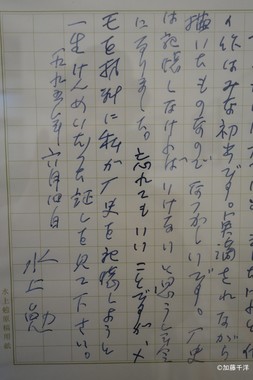 作はみな初当です。点滴されながら
描いたものなので なつかしいです。厂史
は記憶しなければいけないと思う年令
になりました。忘れてもいいことですが、メ
モを頼りに私が厂史を記憶しようと
一生けんめいだった証しを見て下さい。
一九九五年 六月四日
水上勉
水上勉原稿用紙
©加藤千洋